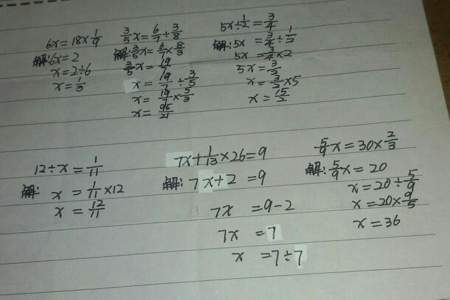 6x=18×1/9
解:6x=2
x=2÷6
x=1/3
3/5x=6/7÷3/8
解:3/5x=6/7×8/3
x=19/7÷3/5
x=19/7×5/3
x=95/21
5x÷1/2=3/4
解:5x=3/4÷1/2
5x=3/4×2
5x=3/2
x=3/2×5
x=15/2
12÷x=1/11
解:x=1/11×12
x=12/11
7x+1/13×26=9
解:7x+2=9
7x=9-2
7x=7
x=7÷7
5/9x=30×2/3
解:5/9x=20
x=20÷5/9
x=20×9/5
x=36